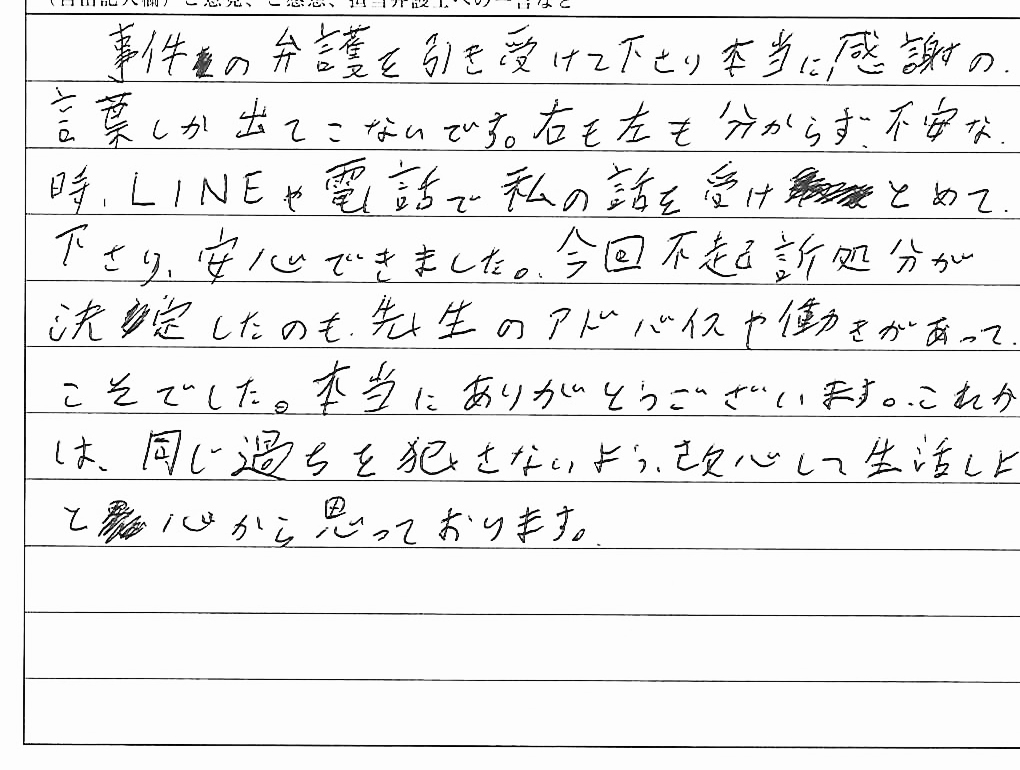 （自由記入欄）ご意見、ご感想、担当弁護士への一言など
事件の弁護を引き受けて下さり本当に感謝の
言葉しか出てこないです。右も左も分からず、不安な
時、LINEや電話で私の話を受けとめて
下さり、安心できました。今回不起訴処分が
決定したのも、先生のアドバイスや働きがあって
こそでした。本当にありがとうございます。これか
は、同じ過ちを犯さないよう、改心して生活しよ
と心から思っております。